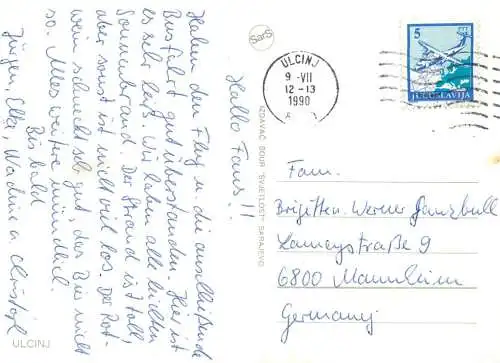 Hallo Fans!!
Haben den Flug u. die anschließende
Busfahrt gut überstanden. Hier ist
es sehr heiß. Wir haben alle leichten
Sonnenbrand. Der Strand ist toll
aber sonst ist nicht viel los. Der Rot-
wein schmeckt sehr gut, das Bier nicht
so. Alles weitere mündlich.
Bis bald
Jürgen, Elke, Nadine u. Christoph
ULCINJ
SarS
IZDAVAČ SOUR "SVJETLOST" SARAJEVO
ULCINJ
9 -VII
12-13
1990
5
JUGOSLAVIJA
Fam.
Brigitte u. Werner Ganzbull
Lameystraße 9
6800 Mannheim
Germany